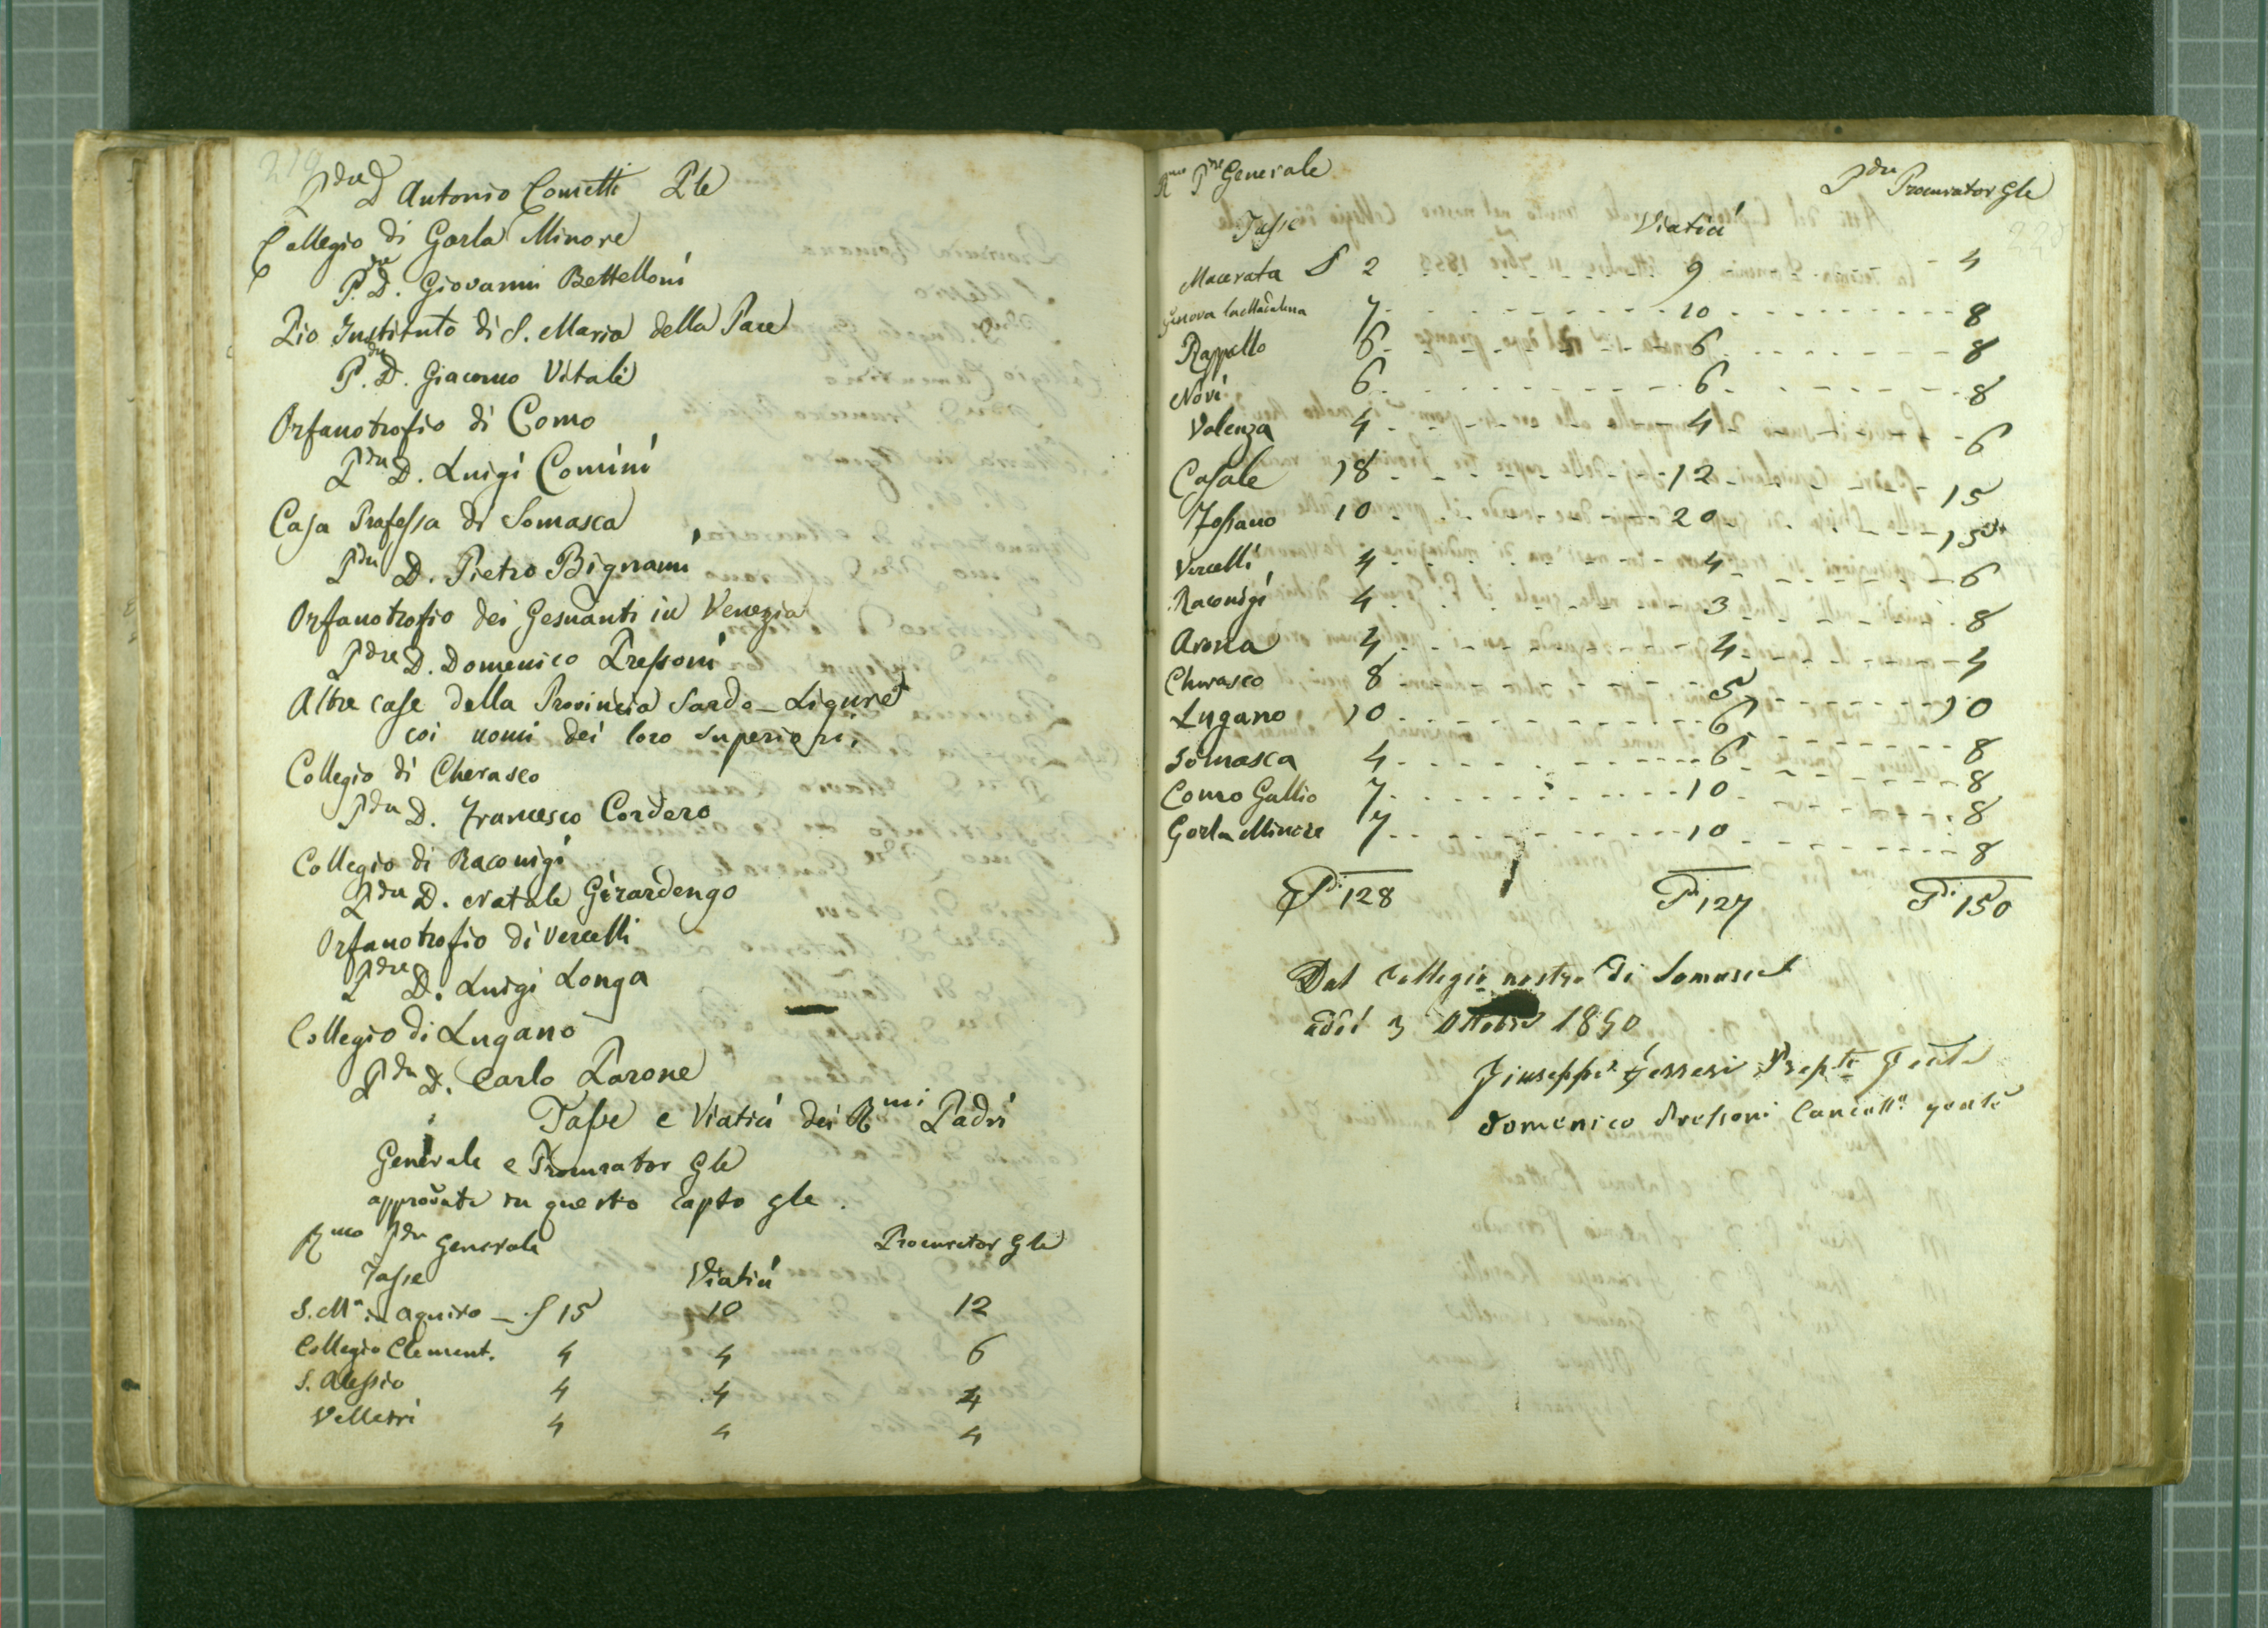 219
Pdre D Antonio Cometti Ple
Collegio di Gorla Minore
P.dre D. Giovanni Bettelloni
Pio Instituto di S. Maria della Pace
P.dre D. Giacomo Vitali
Orfanotrofio di Como
Pdre D. Luigi Comini
Casa Professa di Somasca
Pdre D. Pietro Bignami
Orfanotrofio dei Gesuanti in Venezia
Pdre D. Domenico Pressoni
Altre case della Provincia Sardo-Ligure
coi nomi dei loro superiori,
Collegio di Cherasco
Pdre D. Francesco Cordero
Collegio di Raconigi
Pdre D. Natale Girardengo
Orfanotrofio di Vercelli
Pdre D. Luigi Longa
Collegio di Lugano
Pdre D. Carlo Parone
Tasse e Viatici dei Rmi Padri
Generale e Procurator Gle
approvate in questo capto gle.
Rmo Pdre Generale Procurator Gle
Tasse Viatici
S. Ma in aquiro 15 10 12
Collegio Clement. 4 4 6
S. Alessio 4 4 4
Velletri 4 4 4
Rmo Pre Generale Pdre Procurator Gle
Tasse Viatici
220
Macerata 2 9 4
Genova la Madalena 7 10 8
Rappallo 6 6 8
Novi 6 6 8
Valenza 4 4 6
Casale 18 12 15
Fossano 10 20 15
Vercelli 4 4 6
Raconigi 4 3 8
Arona 4 4 4
Cherasco 8 5 10
Lugano 10 6 8
Somasca 4 6 8
Como Gallio 7 10 8
Gorla Minore 7 10 8
128 127 150
Dal Collegio nostro di Somasca
addi 3 Ottobre 1850
Giuseppe Ferreri Prepto Genle
Domenico Pressoni Cancelle genle